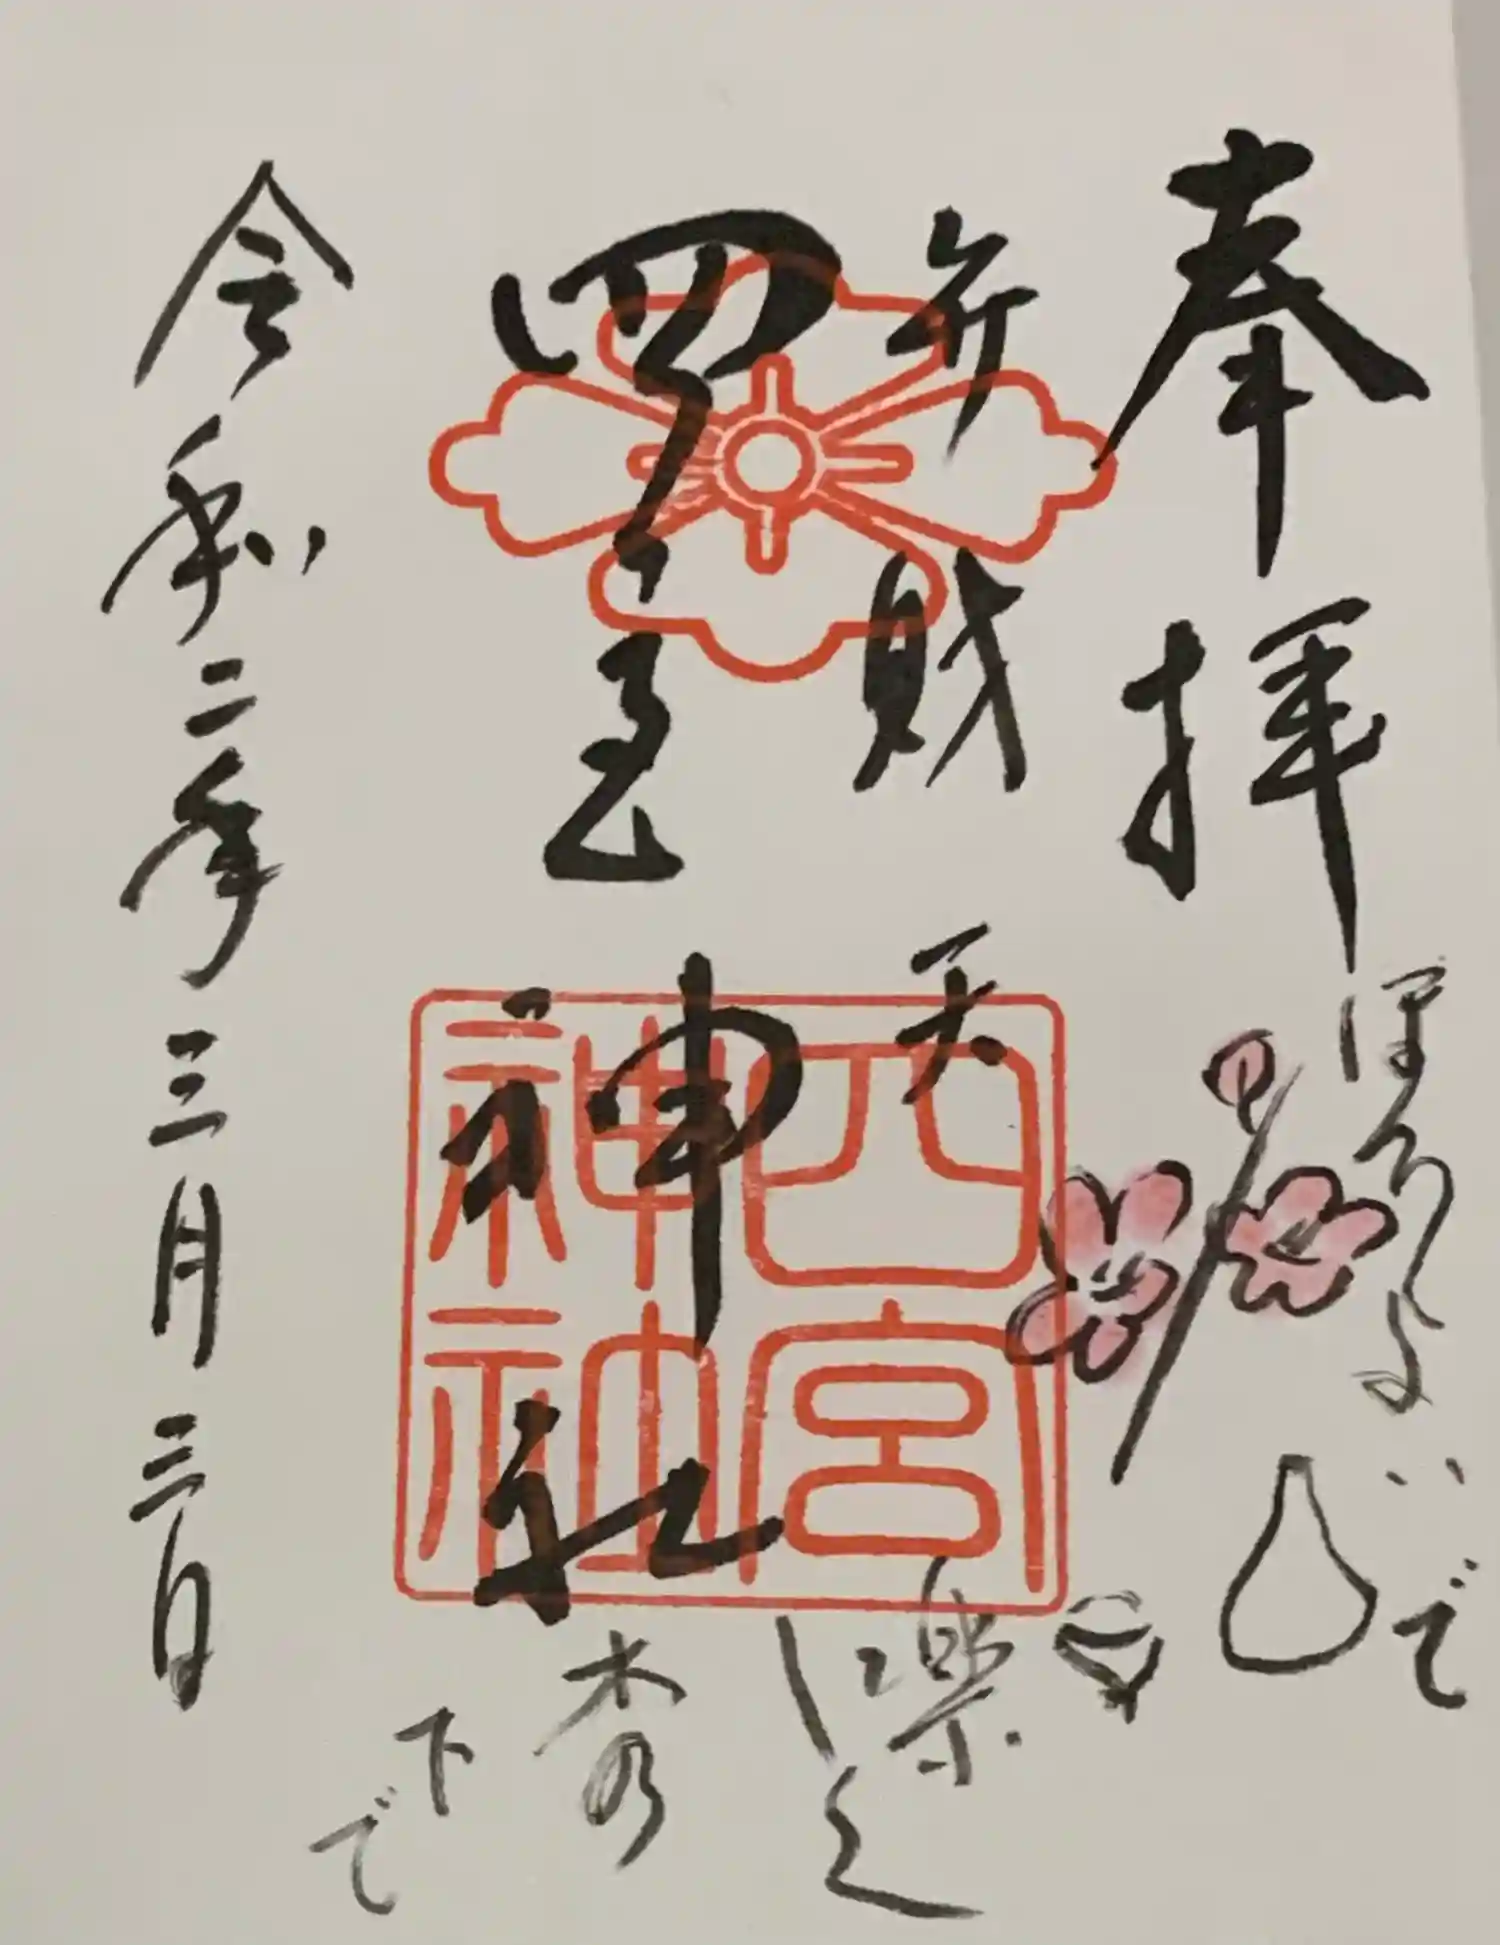 奉拝
弁財天
四宮神社
令和二年三月三日
四宮
神社
ほろよいで
楽しく
下で